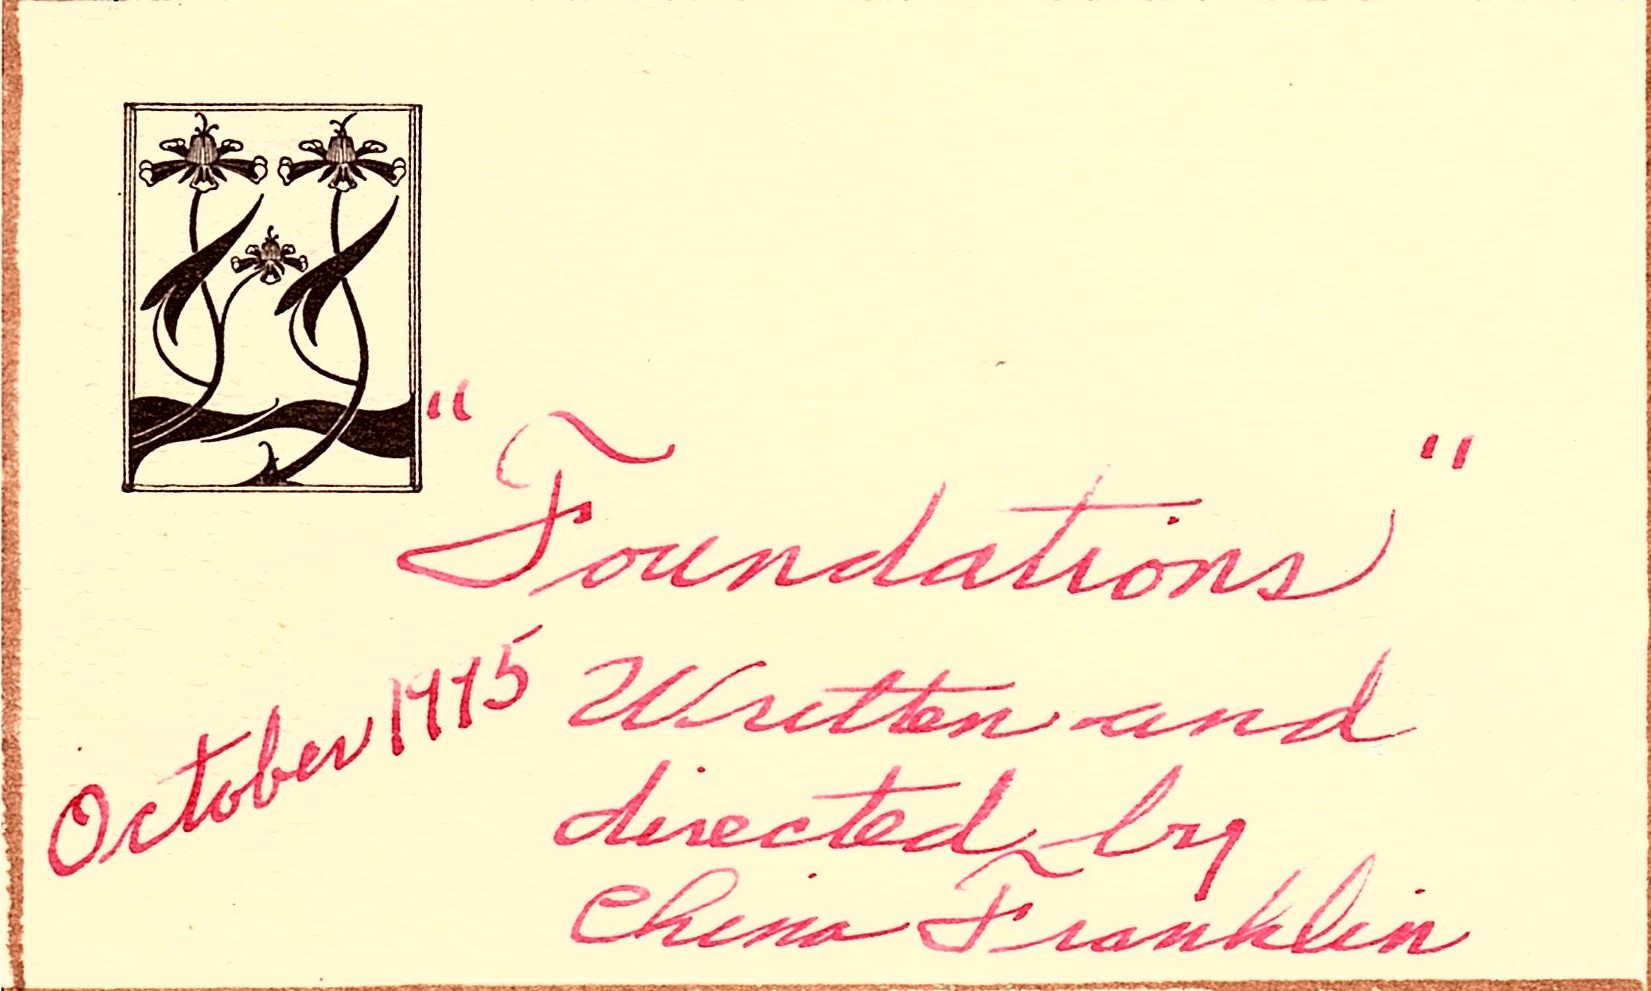 "Foundations"
October
Written and
directed by
China Franklin